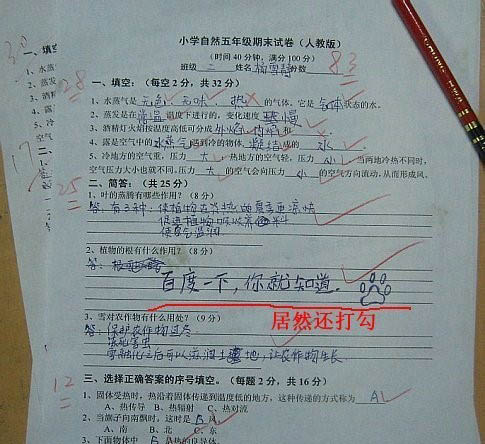 小学自然五年级期末试卷（人教版）
（时间40分钟，满分100分）
班级 二 姓名 分数 83
一、填空：（每空2分，共32分）
28
1、水蒸气是 无色 无味、 的气体，它是 气体 状态的水。
2、蒸发是在 常温 温度下进行的，变化速度 慢
3、酒精灯火焰按温度高低可分成 外焰、内焰 和 、
4、露是空气中的 水蒸气 遇到冷的物体， 凝结成的 水
5、冷地方的空气重，压力 大，热地方的空气轻，压力 小。当两地冷热不同时，
空气压力大小也就不同。压力 大 的空气会向压力 小 的空气方向流动，从而形成风。
二、简答：（共25分）
25
1、叶的蒸腾有哪些作用？（8分）
答：有三种：使植物
2、植物的根有什么作用？（8分）
答：
百度一下，你就知道。
居然还打勾
3、雪对农作物有什么用处？（9分）
答：保护农作物过冬
冻死害虫
雪融化之后可以 土 地，让农作物生长
三、选择正确答案的序号填空。（每题2分，共16分）
12
1、固体受热时，热沿着固体传递到温度低的地方，这种传递的方式称为 A
A、热传导 B、热辐射 C、热对流
2、当旗子向南飘时，这时是 风
A、南 B、北 C、东
3、下面物体中 B 是热的良导体。